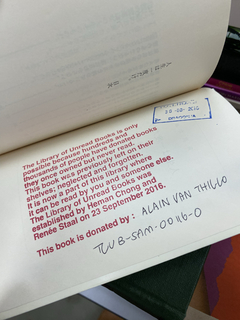 The Library of Unread Books is only
possible because hundreds and
thousands of people have donated books
they once owned but never read.
This book was previously left on their
shelves; neglected and forgotten.
It is now a part of this library where
it can be read by you and someone else.
The Library of Unread Books was
established by Heman Chong and
Renée Staal on 23 September 2016.
This book is donated by : ALAIN VAN THILLO
TLUB-SAM-00116-0